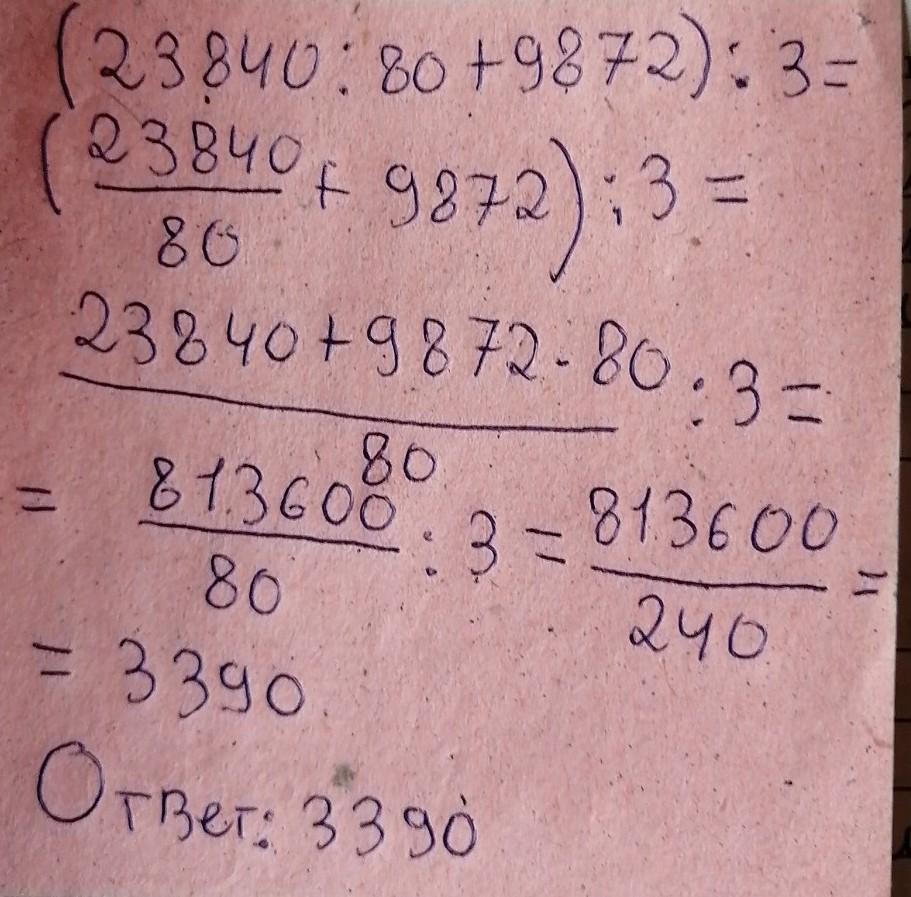 (23840:80+9872):3=
(23840/80 + 9872):3=
(23840+9872·80)/80 :3=
= 813600/80 :3 = 813600/240 =
= 3390
Ответ: 3390